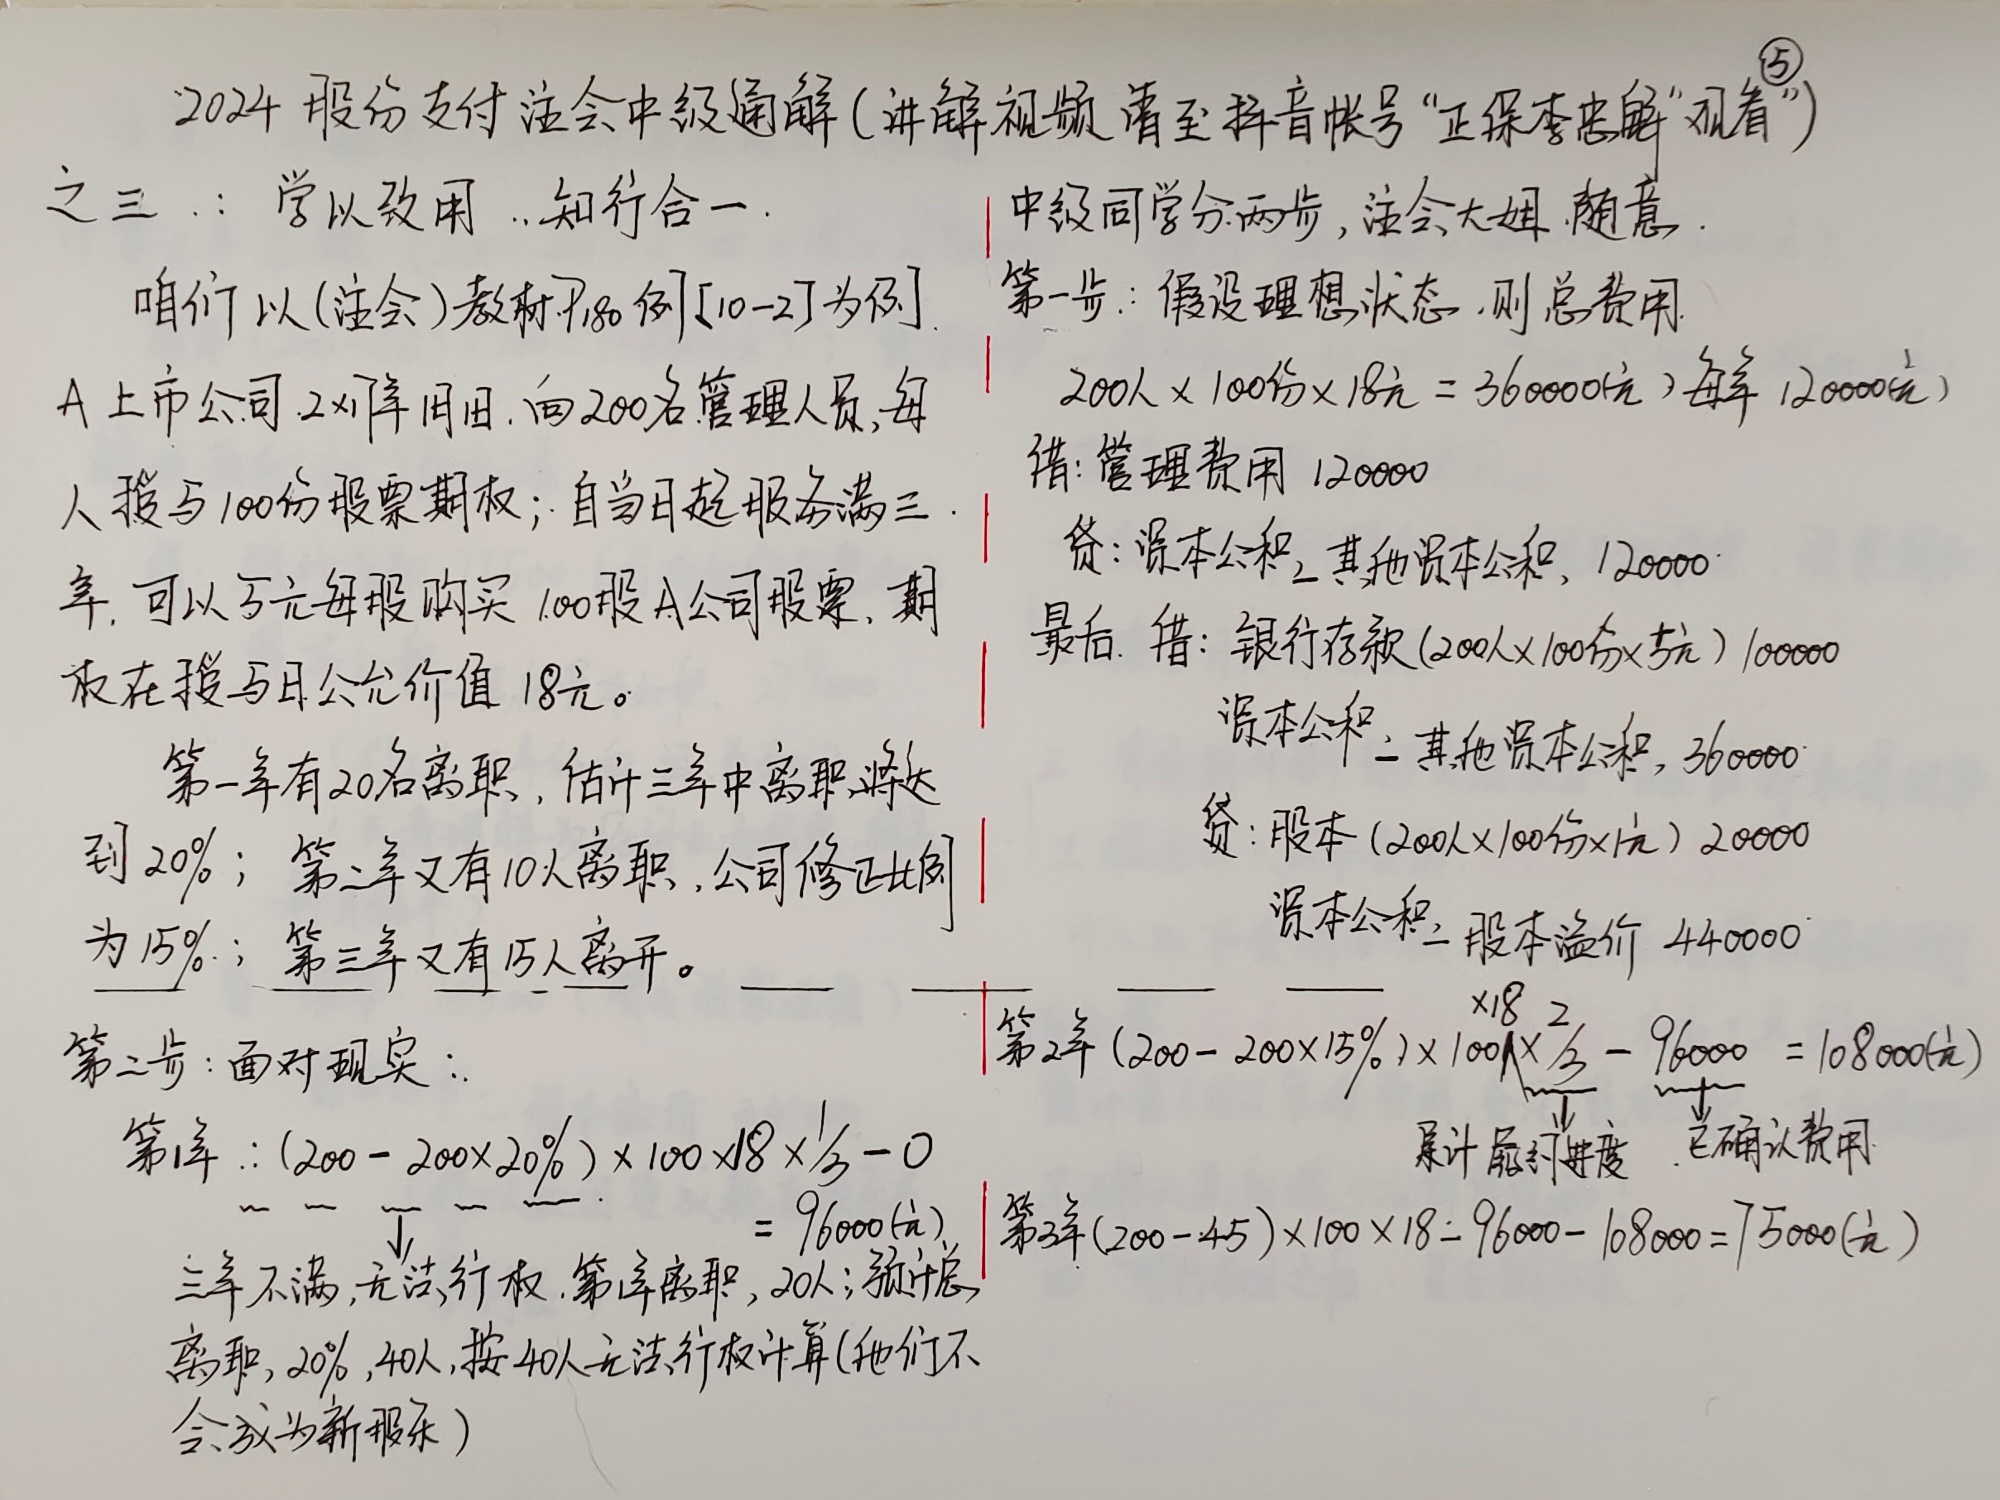 ⑤
2024 股份支付注会中级通解(讲解视频请至抖音帐号“正保李忠解“观看”)
之三 : 学以致用 .. 知行合一.
咱们以(注会)教材P180 例[10-2]为例.
A上市公司2×1年1月1日,向200名管理人员,每
人授与100份股票期权; 自当日起服务满三
年,可以5元每股购买100股A公司股票,期
权在授与日公允价值18元。
第一年有20名离职,估计三年中离职将达
到20%; 第二年又有10人离职,公司修正比例
为15%; 第三年又有15人离开。
中级同学分两步,注会大姐随意.
第一步: 假设理想状态,则总费用
200人×100份×18元=360000(元),每年120000(元)
借:管理费用 120000
贷:资本公积–其他资本公积, 120000
最后.借: 银行存款(200人×100份×5元)100000
资本公积–其他资本公积, 360000
贷:股本(200人×100份×1元)20000
资本公积–股本溢价 440000
第二步:面对现实:
第1年:(200-200×20%)×100×18×1/3-0
=96000(元)
三年不满,无法行权.第1年离职,20人;预计总
离职,20%,40人,按40人无法行权计算(他们不
会成为新股东)
×18
第2年(200-200×15%)×100×2/3-96000=108000(元)
累计履约进度 已确认费用
第3年(200-45)×100×18-96000-108000=75000(元)